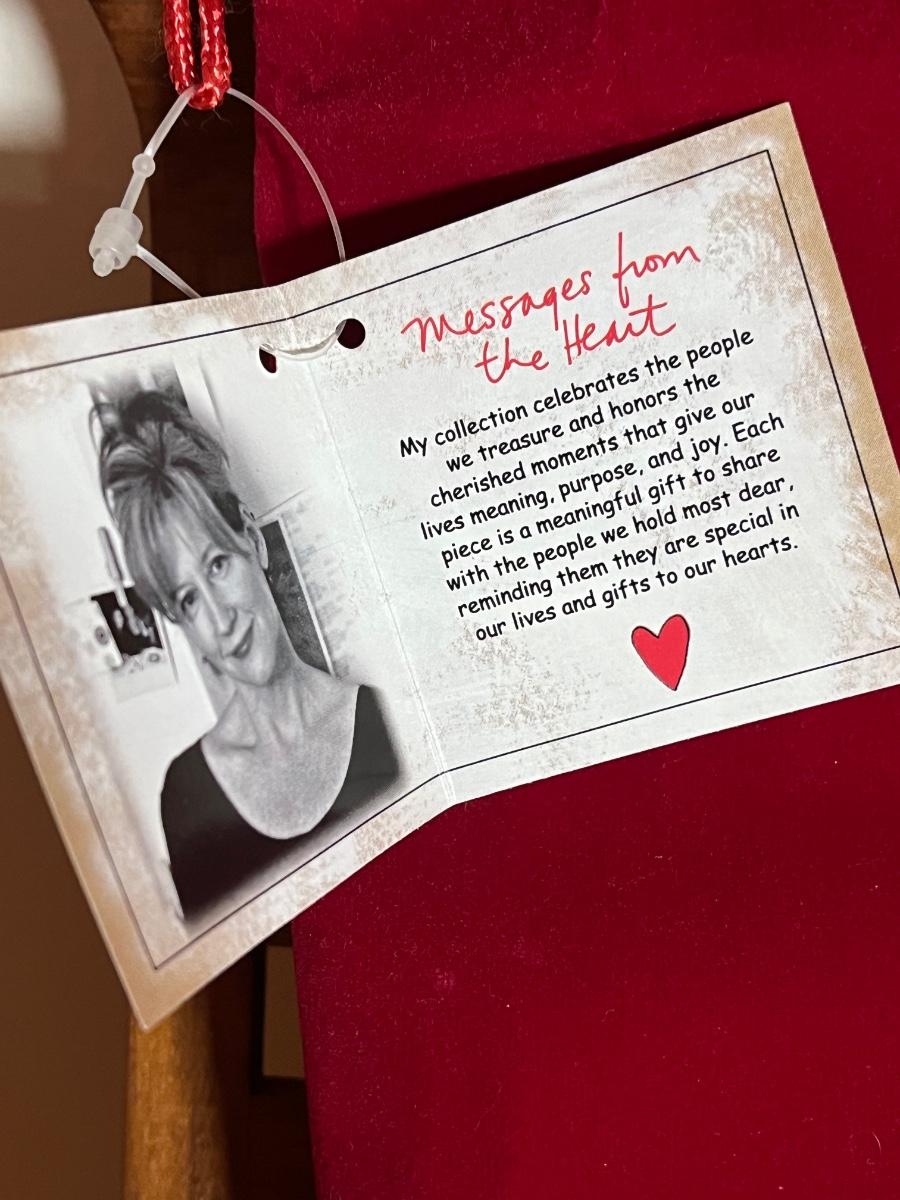 Messages from
the Heart
My collection celebrates the people
we treasure and honors the
cherished moments that give our
lives meaning, purpose, and joy. Each
piece is a meaningful gift to share
with the people we hold most dear,
reminding them they are special in
our lives and gifts to our hearts.